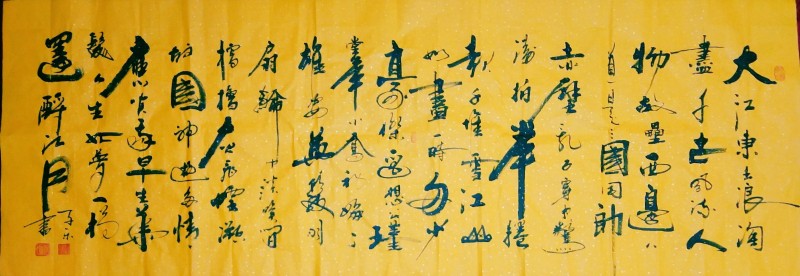 大江東去浪淘
盡千古風流人
物故壘西邊人
道是三國周郎
赤壁亂石穿空驚
濤拍岸捲
起千堆雪江山
如畫一時多少
豪傑遙想公瑾
當年小喬初嫁了
雄姿英發羽
扇綸巾談笑間
檣櫓灰飛煙滅
故國神遊多情
應笑我早生華
髮人生如夢一樽
還酹江月
書